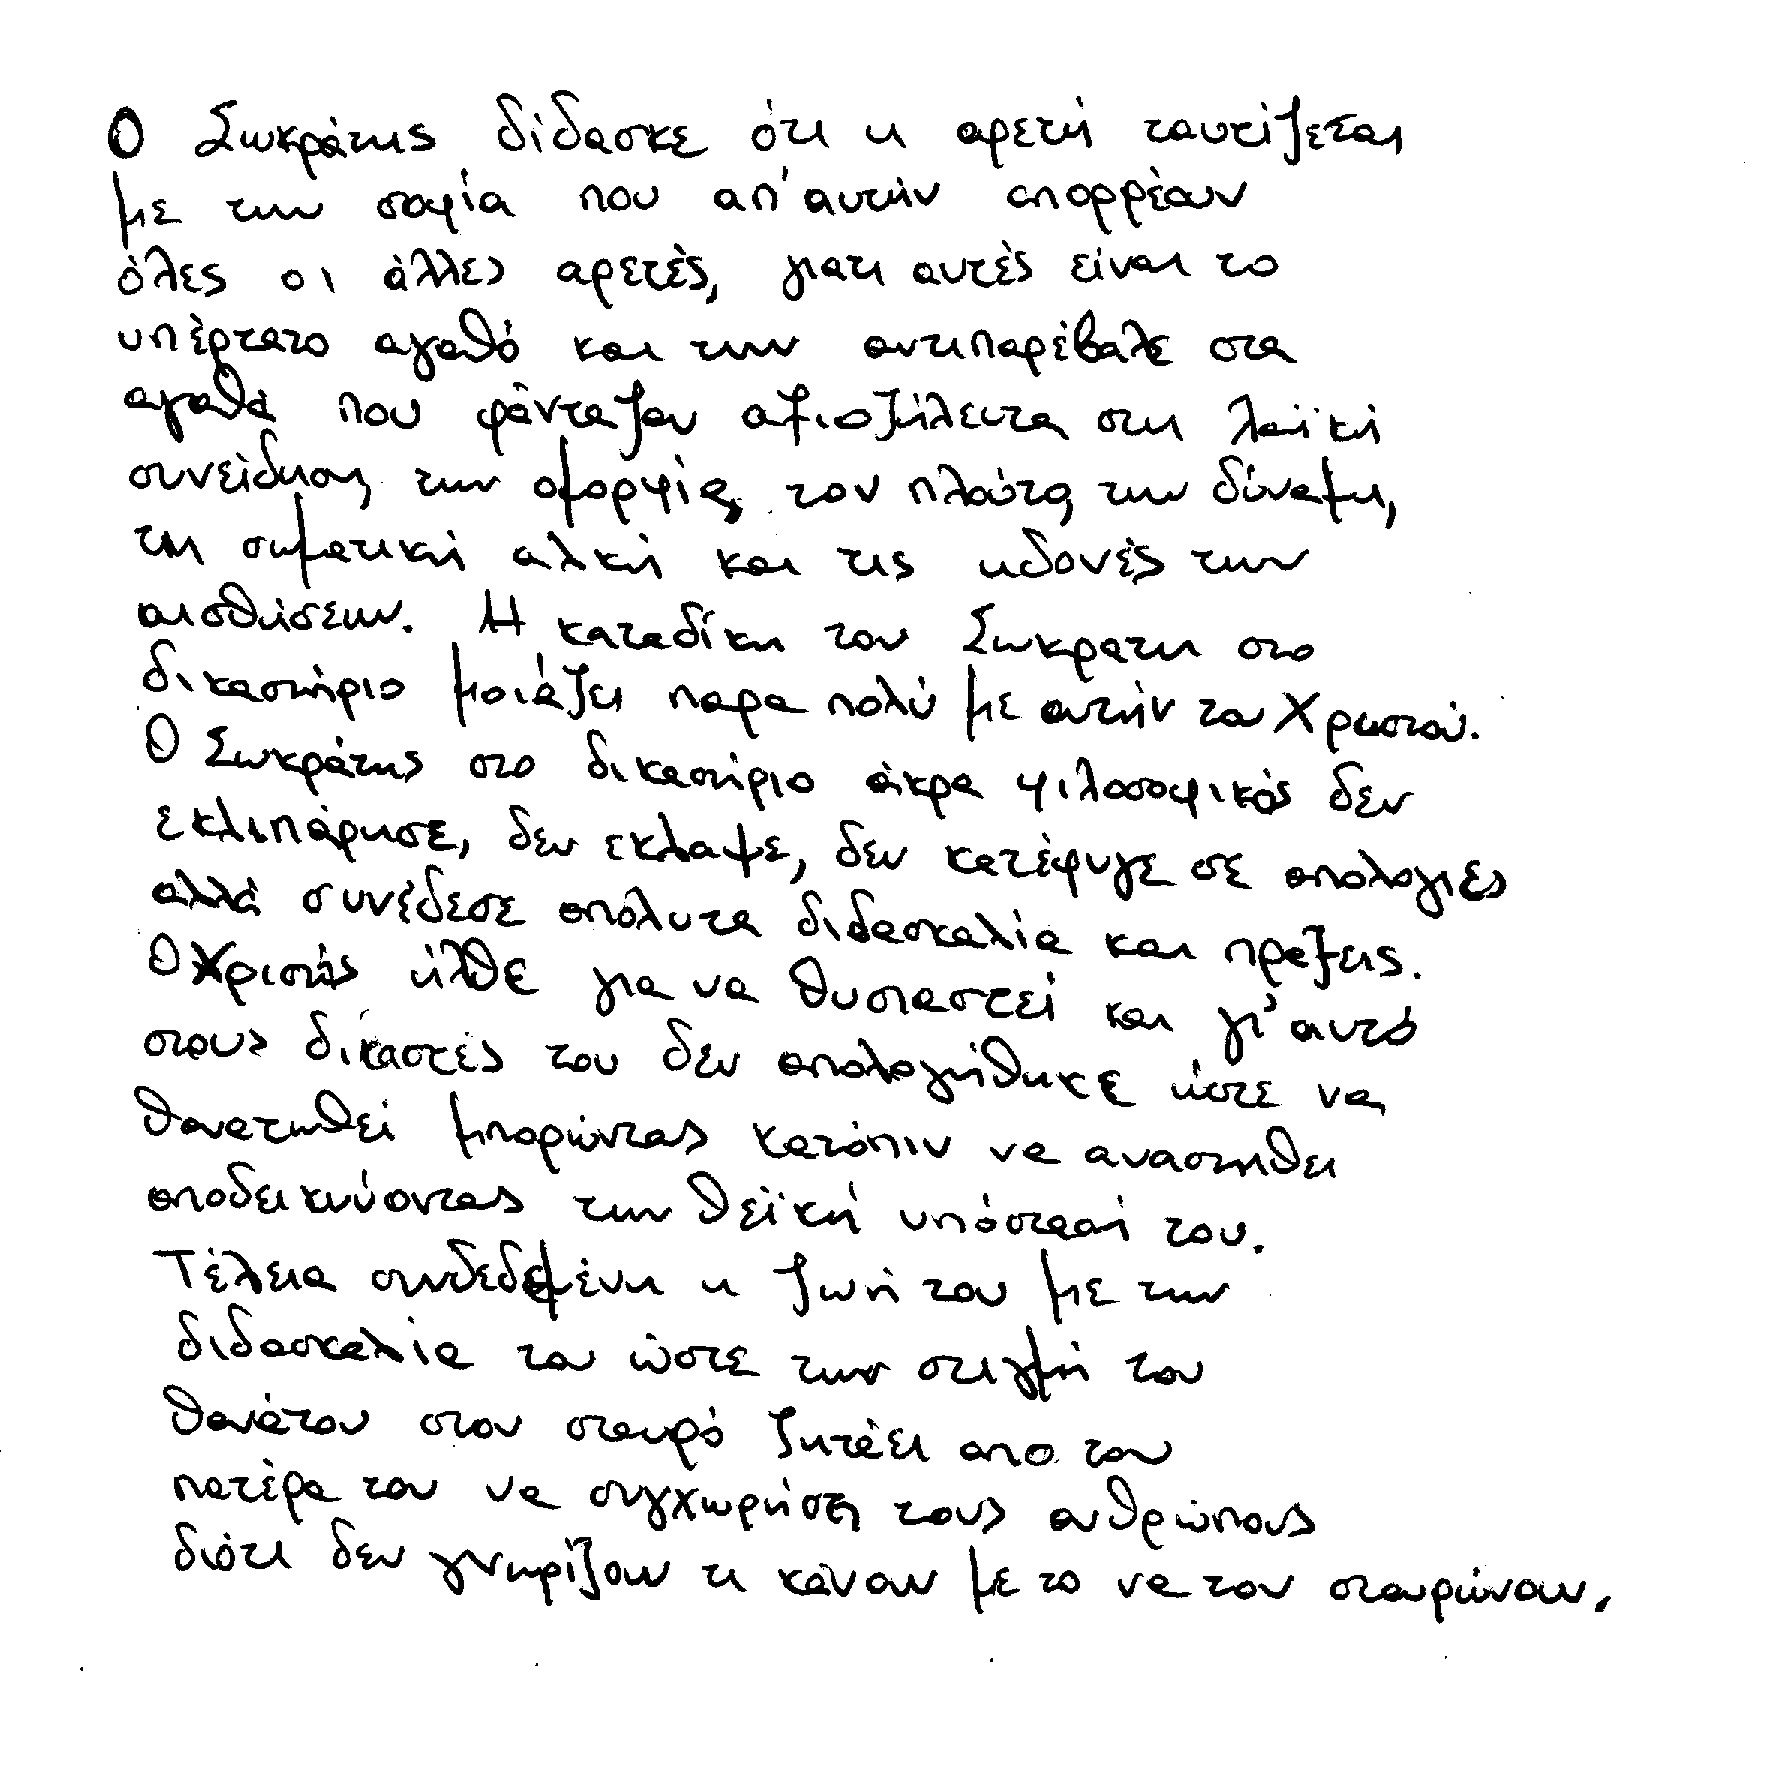 Ο Σωκράτης δίδασκε ότι η αρετή ταυτίζεται
με την σοφία που απ'αυτήν απορρέουν
όλες οι άλλες αρετές, γιατι αυτές είναι το
υπέρτατο αγαθό και την αντιπαρέβαλε στα
αγαθά που φάνταζαν αξιοζήλευτα στη λαϊκή
συνείδηση, την ομορφία, τον πλούτο, την δύναμη,
τη σωματική αλκή και τις ηδονές των
αισθήσεων. Η καταδίκη του Σωκρατη στο
δικαστήριο μοιάζει παρα πολύ με αυτήν του Χριστού.
Ο Σωκράτης στο δικαστήριο άκρα φιλοσοφικός δεν
εκλιπάρησε, δεν εκλαψε, δεν κατέφυγε σε απολογιές
αλλά συνέδεσε απόλυτα διδασκαλία και πράξεις.
Ο Χριστός ήλθε για να θυσιαστεί και γι'αυτό
στους δικαστές του δεν απολογήθηκε ώστε να
θανατωθεί μπορώντας κατόπιν να αναστηθει
αποδεικνύοντας την θεϊκή υπόστασή του.
Τέλεια συνδεδεμένη η ζωή του με την
διδασκαλία του ώστε την στιγμή του
θανάτου στον σταυρό ζητάει απο τον
πατέρα του να συγχωρήση τους ανθρώπους
διότι δεν γνωρίζουν τι κάνουν με το να τον σταυρώνουν.